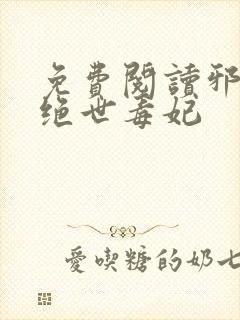 免費閱讀邪
绝世毒妃
愛喫糖的奶七